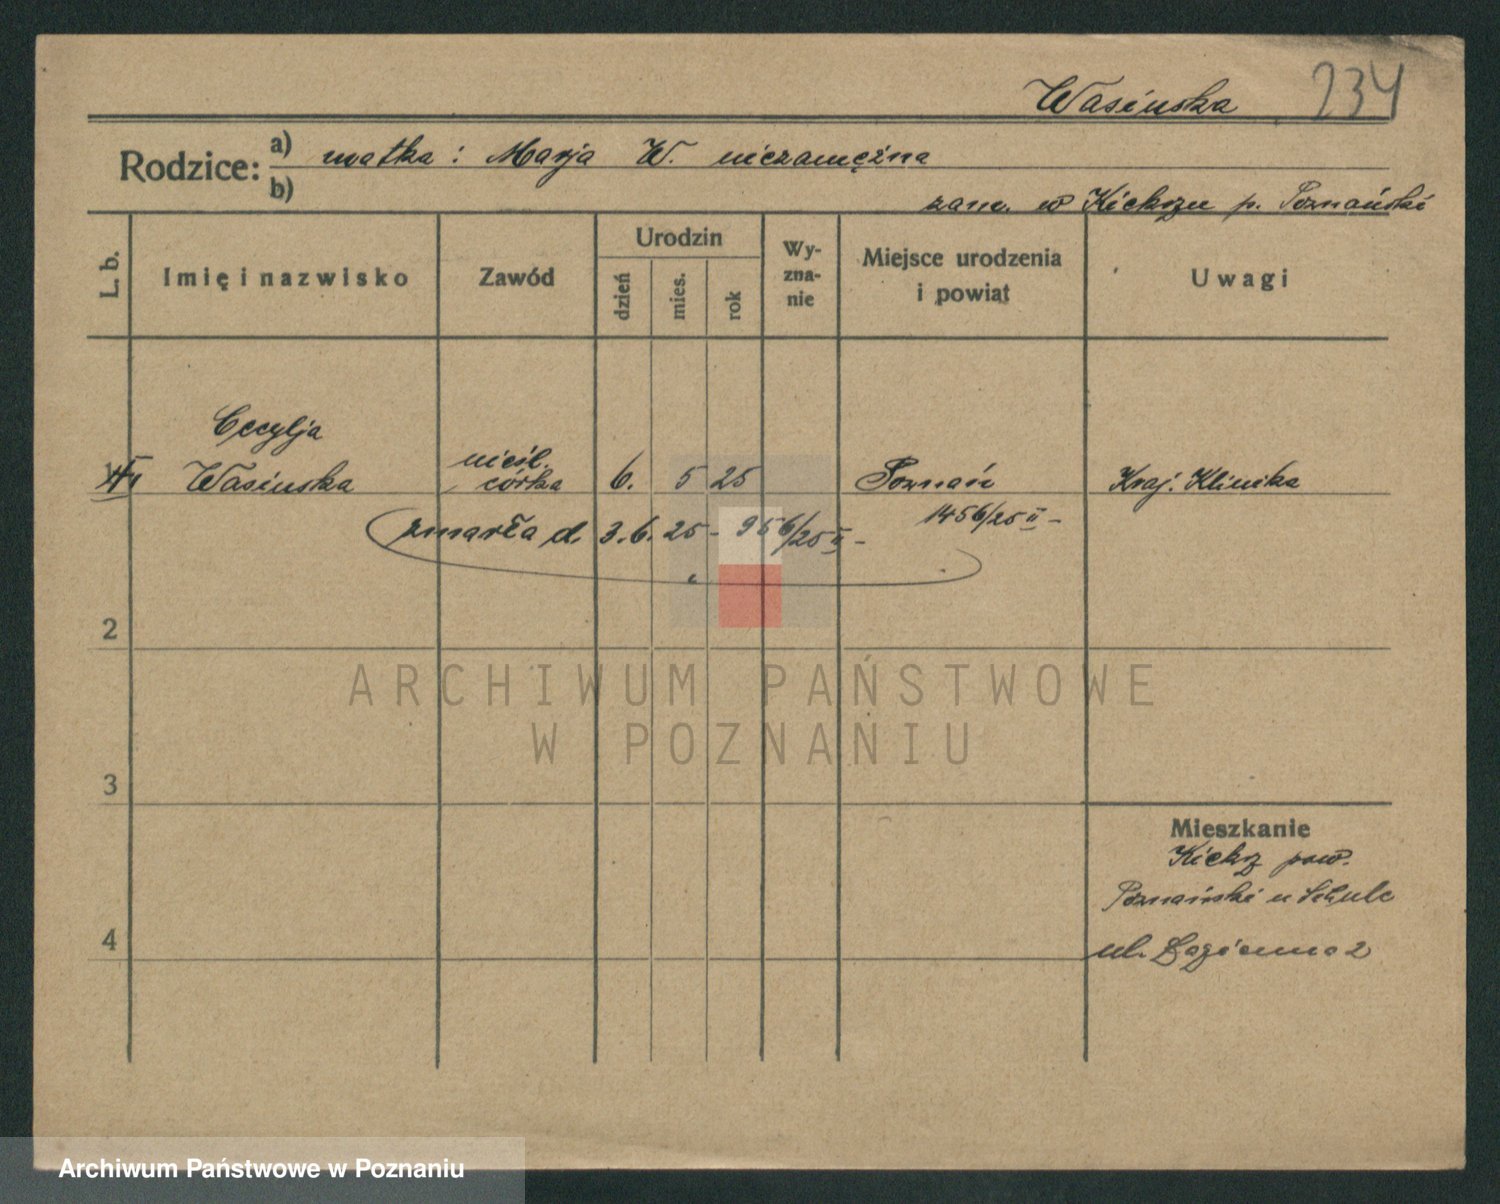 Wasinska 234
Rodzice: a) matka: Marja W. niezamężna
b) zam. w Kiekrzu p. Poznański
L. b.
Imię i nazwisko
Zawód
Urodzin
dzień
mies.
rok
Wy-
zna-
nie
Miejsce urodzenia
i powiat
Uwagi
Cecylja
Wasinska
nieśl.
córka
6. 5 25
Poznań
1456/25 II -
Kraj. Klinika
zmarła d. 3.6.25 - 956/25 II -
2
3
4
Mieszkanie
Kiekrz pow.
Poznański u
ul. Łazienna 2
ARCHIWUM PAŃSTWOWE
W POZNANIU
Archiwum Państwowe w Poznaniu